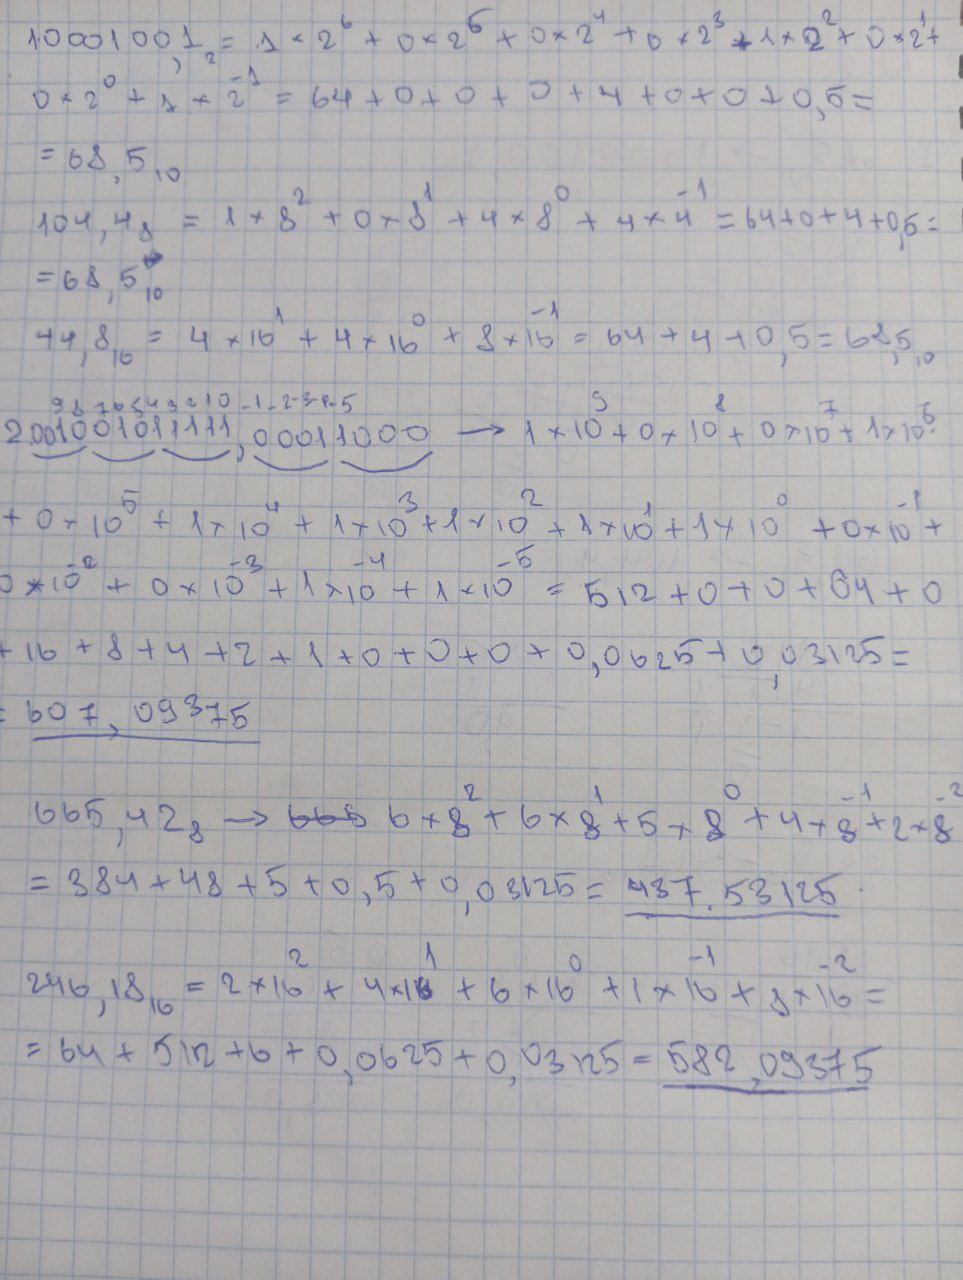 1000100,1₂ = 1×2⁶ + 0×2⁵ + 0×2⁴ + 0×2³ + 1×2² + 0×2¹ +
0×2⁰ + 1×2⁻¹ = 64+0+0+0+4+0+0+0,5=
=68,5₁₀
104,4₈ = 1×8² + 0×8¹ + 4×8⁰ + 4×4⁻¹ = 64+0+4+0,5=
=68,5₁₀
44,8₁₆ = 4×16¹ + 4×16⁰ + 8×16⁻¹ = 64+4+0,5=68,5₁₀
9 8 7 6 5 4 3 2 1 0 -1 -2 -3 -4 -5
2. 001001011111,00011000 → 1×10⁹+0×10⁸+0×10⁷+1×10⁶
+ 0×10⁵ + 1×10⁴ + 1×10³ + 1×10² + 1×10¹ + 1×10⁰ + 0×10⁻¹ +
0×10⁻² + 0×10⁻³ + 1×10⁻⁴ + 1×10⁻⁵ = 512+0+0+64+0
+16+8+4+2+1+0+0+0+0,0625+0,03125=
= 607,09375
665,42₈ → 6×8² + 6×8¹ + 5×8⁰ + 4×8⁻¹ + 2×8⁻²
= 384+48+5+0,5+0,03125= 437.53125
246,18₁₆ = 2×16² + 4×16¹ + 6×16⁰ + 1×16⁻¹ + 8×16⁻² =
= 64+512+6+0,0625+0,03125= 582,09375